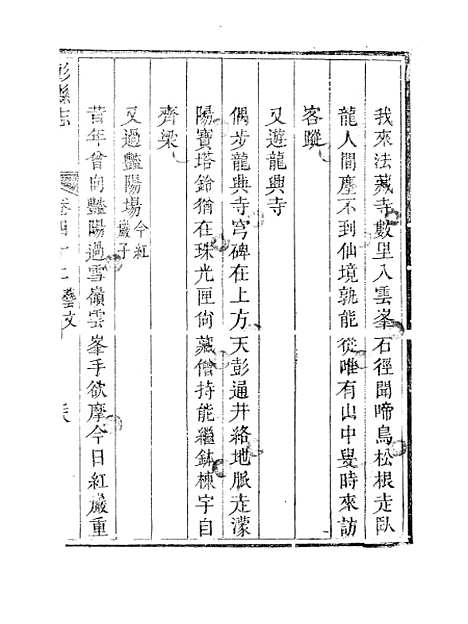 我來法藏寺數里入雲峯石徑聞啼鳥松根走臥
龍人間塵不到仙境孰能從唯有山中叟時來訪
客蹤
又遊龍興寺
偶步龍興寺穹碑在上方天彭通井絡地脈走濛
陽寶塔鈴猶在珠光匣尙藏僧持能繼鉢棟宇自
齊梁
又過豔陽場今紅巖子
昔年曾向豔陽過雪嶺雲峯手欲摩今日紅巖重
彭縣志 卷四十二 藝文